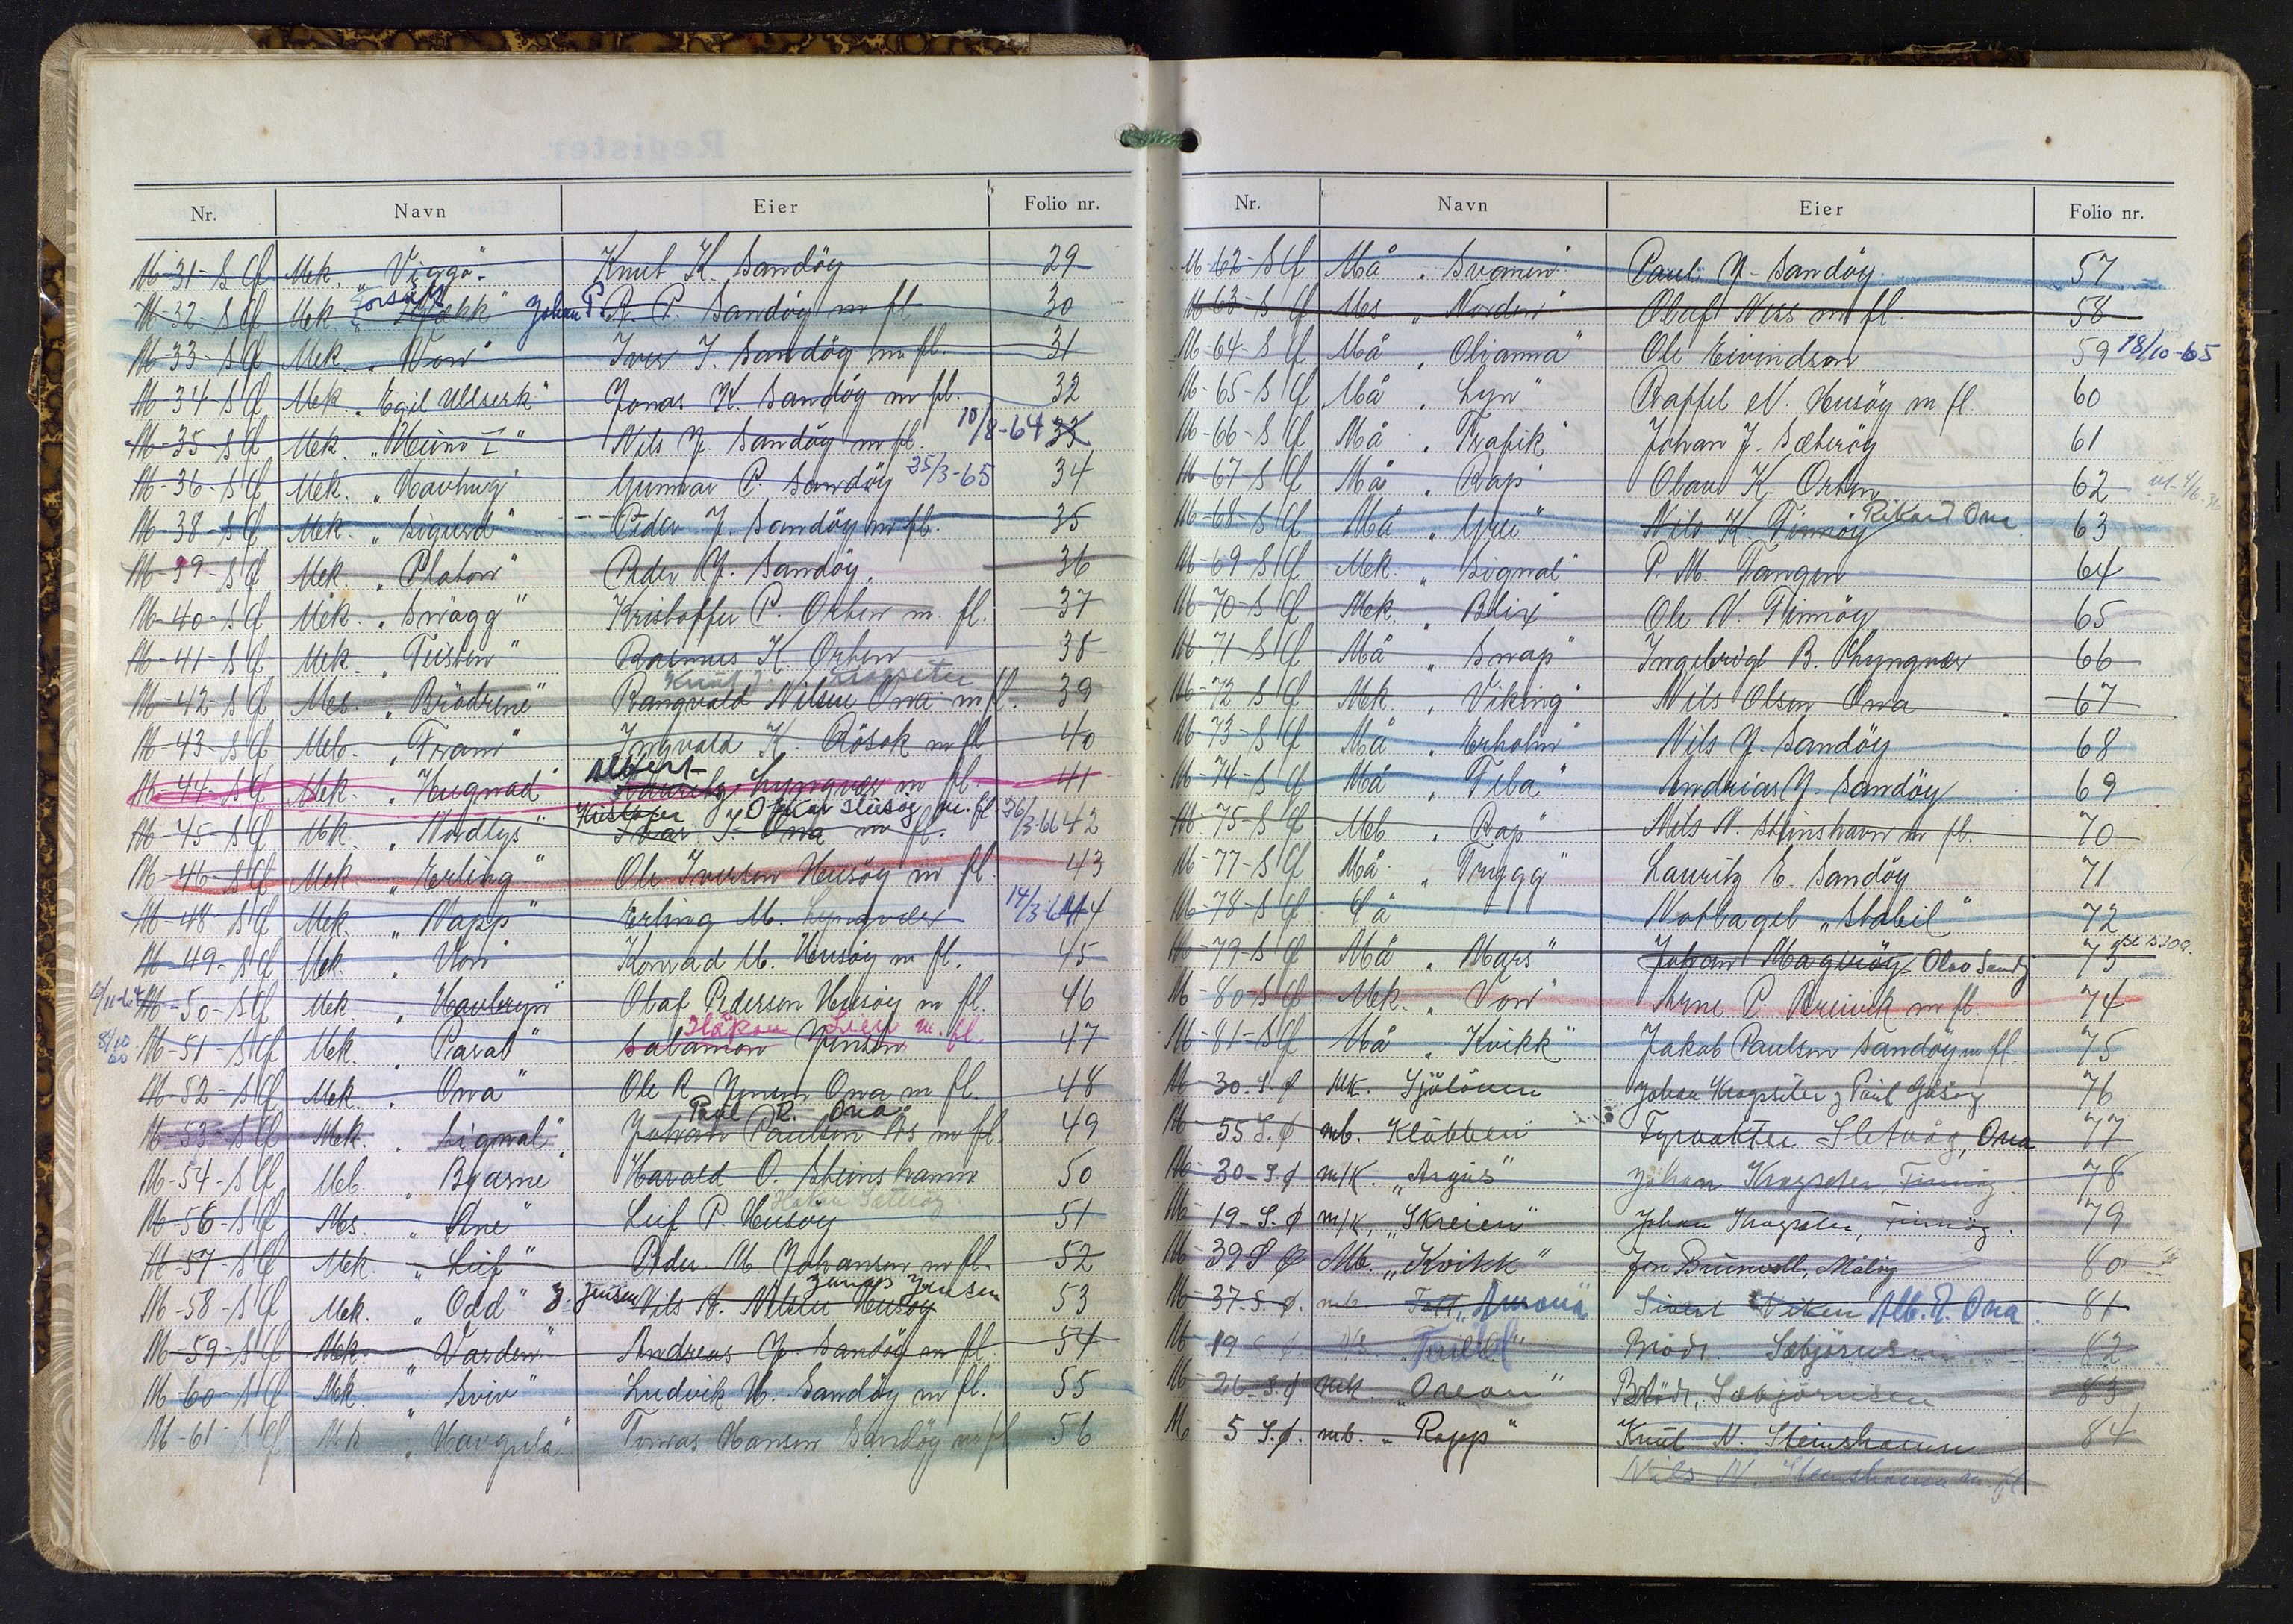 Nr. Navn Eier Folio nr.
M-31-S Ø Mek. "Viggo" Knut K. Sandöy 29
M-32-S Ø Mek. "Forsök" Johan P. R. P. Sandöy m fl 30
M-33-S Ø Mek. "Von" Iver J. Sandöy m fl. 31
M-34-S Ø Mek. "Egil Ullserk" Jonas K. Sandöy m fl. 32
M-35-S Ø Mek. "Heimo I" Nils J. Sandöy m fl. 10/8-64 33
M-36-S Ø Mek. "Havhug" Gunnar P. Sandöy 25/3-65 34
M-38-S Ø Mek. "Sigurd" Peder J. Sandöy m fl. 35
M-39-S Ø Mek. "Platon" Peder J. Sandöy. 36
M-40-S Ø Mek. "Snögg" Kristoffer P. Orten m. fl. 37
M-41-S Ø Mek. "Teisten" Rasmus K. Orten 38
Knut J. Kragseter
M-42-S Ø Mes. "Brödrene" Rangvald Nilsen Ona m fl. 39
M-43-S Ø Meb. "Fram" Ingvald K. Rösok m fl 40
Albert
M-44-S Ø Mek. "Hugnad" Lauritz Lyngvær m fl. 41
Kristofer J Oskar Husöy m. fl 26/3-66
M-45-S Ø Mek. "Nordlys" Ivar J. Ona m fl. 42
M-46-S Ø Mek. "Erling" Ole Iversen Husöy m fl. 43
M-48-S Ø Mek. "Napp" Erling M. Lyngvær 14/3-64 44
M-49-S Ø Mek. "Von" Konrad M. Husöy m fl. 45
M-50-S Ø Mek. "Havbryn" Olaf Pedersen Husöy m fl. 46
Håkon Lien m. fl.
8/10 60 M-51-S Ø Mek. "Parat" Salamon Jensen 47
M-52-S Ø Mek. "Ona" Ole R. Jensen Ona m fl. 48
Paul R. Ona
M-53-S Ø Mek. "Signal" Johan Paulsen Ås m fl. 49
M-54-S Ø Meb. "Bjarne" Harald O. Steinshavn 50
M-56-S Ø Mes. "Ane" Leif P. Husöy 51
M-57-S Ø Mek. "Leif" Peder M. Johansen m fl. 52
Jensen
M-58-S Ø Mek. "Odd" J. Jensen Nils A. Nilsen Husöy 53
M-59-S Ø Mek. "Varden" Andreas J. Sandöy m fl. 54
M-60-S Ø Mek. "Sviv" Ludvik M. Sandöy m fl. 55
M-61-S Ø Mek "Havgula" Tomas Hansen Sandöy m fl 56
Nr. Navn Eier Folio nr.
M-62-S Ø Må "Svanen" Paul J. Sandöy 57
M-63-S Ø Mes "Norden" Olaf Ness m fl 58
M-64-S Ø Må "Olianna" Ole Eivindson 59 18/10-65
M-65-S Ø Må "Lyn" Raffel N. Husöy m fl 60
M-66-S Ø Må "Trafik" Johan J. Sæteröy 61
M-67-S Ø Må "Rap" Olaus K Orten 62
M-68-S Ø Må "Grei" Nils K. Finnöy Rikard Ona 63
M-69-S Ø Mek. "Signal" P. M. Tangen 64
M-70-S Ø Mek. "Blix" Ole N. Finnöy 65
M-71-S Ø Må "Snap" Ingebrigt B. Lyngvær 66
M-72-S Ø Mek. "Viking" Nils Olsen Ona 67
M-73-S Ø Må "Erholm" Nils J. Sandöy 68
M-74-S Ø Må "Teba" Andrias J. Sandöy 69
M-75-S Ø Meb. "Rap" Nils N. Steinshavn m fl. 70
M-77-S Ø Må "Trygg" Lauritz E. Sandöy 71
M-78-S Ø Få Notbaget "Stabil" 72
M-79-S Ø Må "Mars" Johan Magnöy Olav Sandöy 73
M-80-S Ø Mek. "Von" Arne P. Breivik m fl. 74
M-81-S Ø Må "Kvikk" Jakob Paulsen Sandöy m fl. 75
M-30-S. Ø Mk. Sjölöven Johan Kragseter, Paul Gåsöy 76
M-55 S. Ø mb. Klöbben Fyrvokter Sletvåg, Ona 77
M-30-S. Ø m/k. "Argus" Johan Kragseter, Finnöy. 78
M-19-S. Ø m/k. "Skreien" Johan Kragseter, Finnöy. 79
M-39 S Ø Mb. "Kvikk" Jon Brunvoll, Målöy 80
M-37-S. Ø. mb. Tott, Amona Sivert Viken Alb. R. Ona. 81
M-19 Brödr. Sæbjörnsen 82
M-26-S. Ø mk. "Orion" Brödr. Sæbjörnsen 83
M-5 S. Ø. mb. "Rapp" Knut N. Steinshavn 84
Nils N. Steinshavn m fl